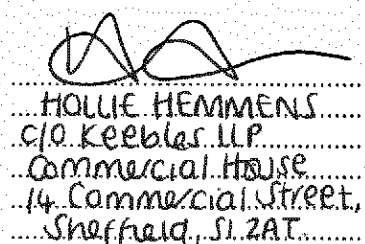 HOLLIE HEMMENS
C/O Keebles LLP
Commercial House
14 Commercial Street,
Sheffield, S1 2AT